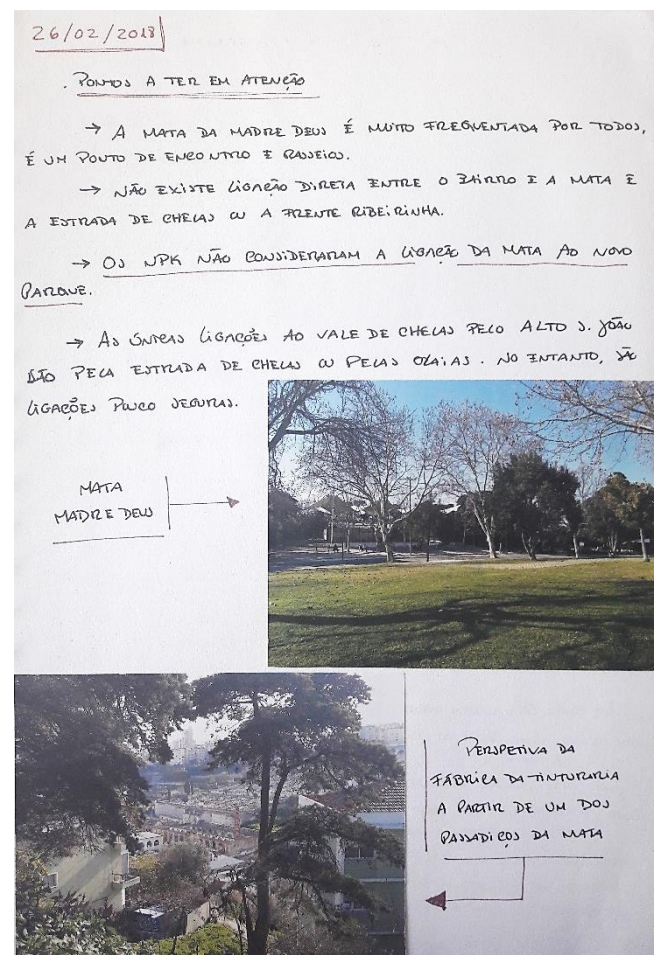 26/02/2018
. PONTOS A TER EM ATENÇÃO
→ A MATA DA MADRE DEUS É MUITO FREQUENTADA POR TODOS,
É UM PONTO DE ENCONTRO E PASSEIOS.
→ NÃO EXISTE LIGAÇÃO DIRETA ENTRE O BAIRRO E A MATA E
A ESTRADA DE CHELAS OU A FRENTE RIBEIRINHA.
→ OS NPK NÃO CONSIDERARAM A LIGAÇÃO DA MATA AO NOVO
PARQUE.
→ AS ÚNICAS LIGAÇÕES AO VALE DE CHELAS PELO ALTO S. JOÃO
SÃO PELA ESTRADA DE CHELAS OU PELAS OLAIAS. NO ENTANTO, SÃO
LIGAÇÕES POUCO SEGURAS.
MATA
MADRE DEUS
PERSPETIVA DA
FÁBRICA DA TINTURARIA
A PARTIR DE UM DOS
PASSADIÇOS DA MATA